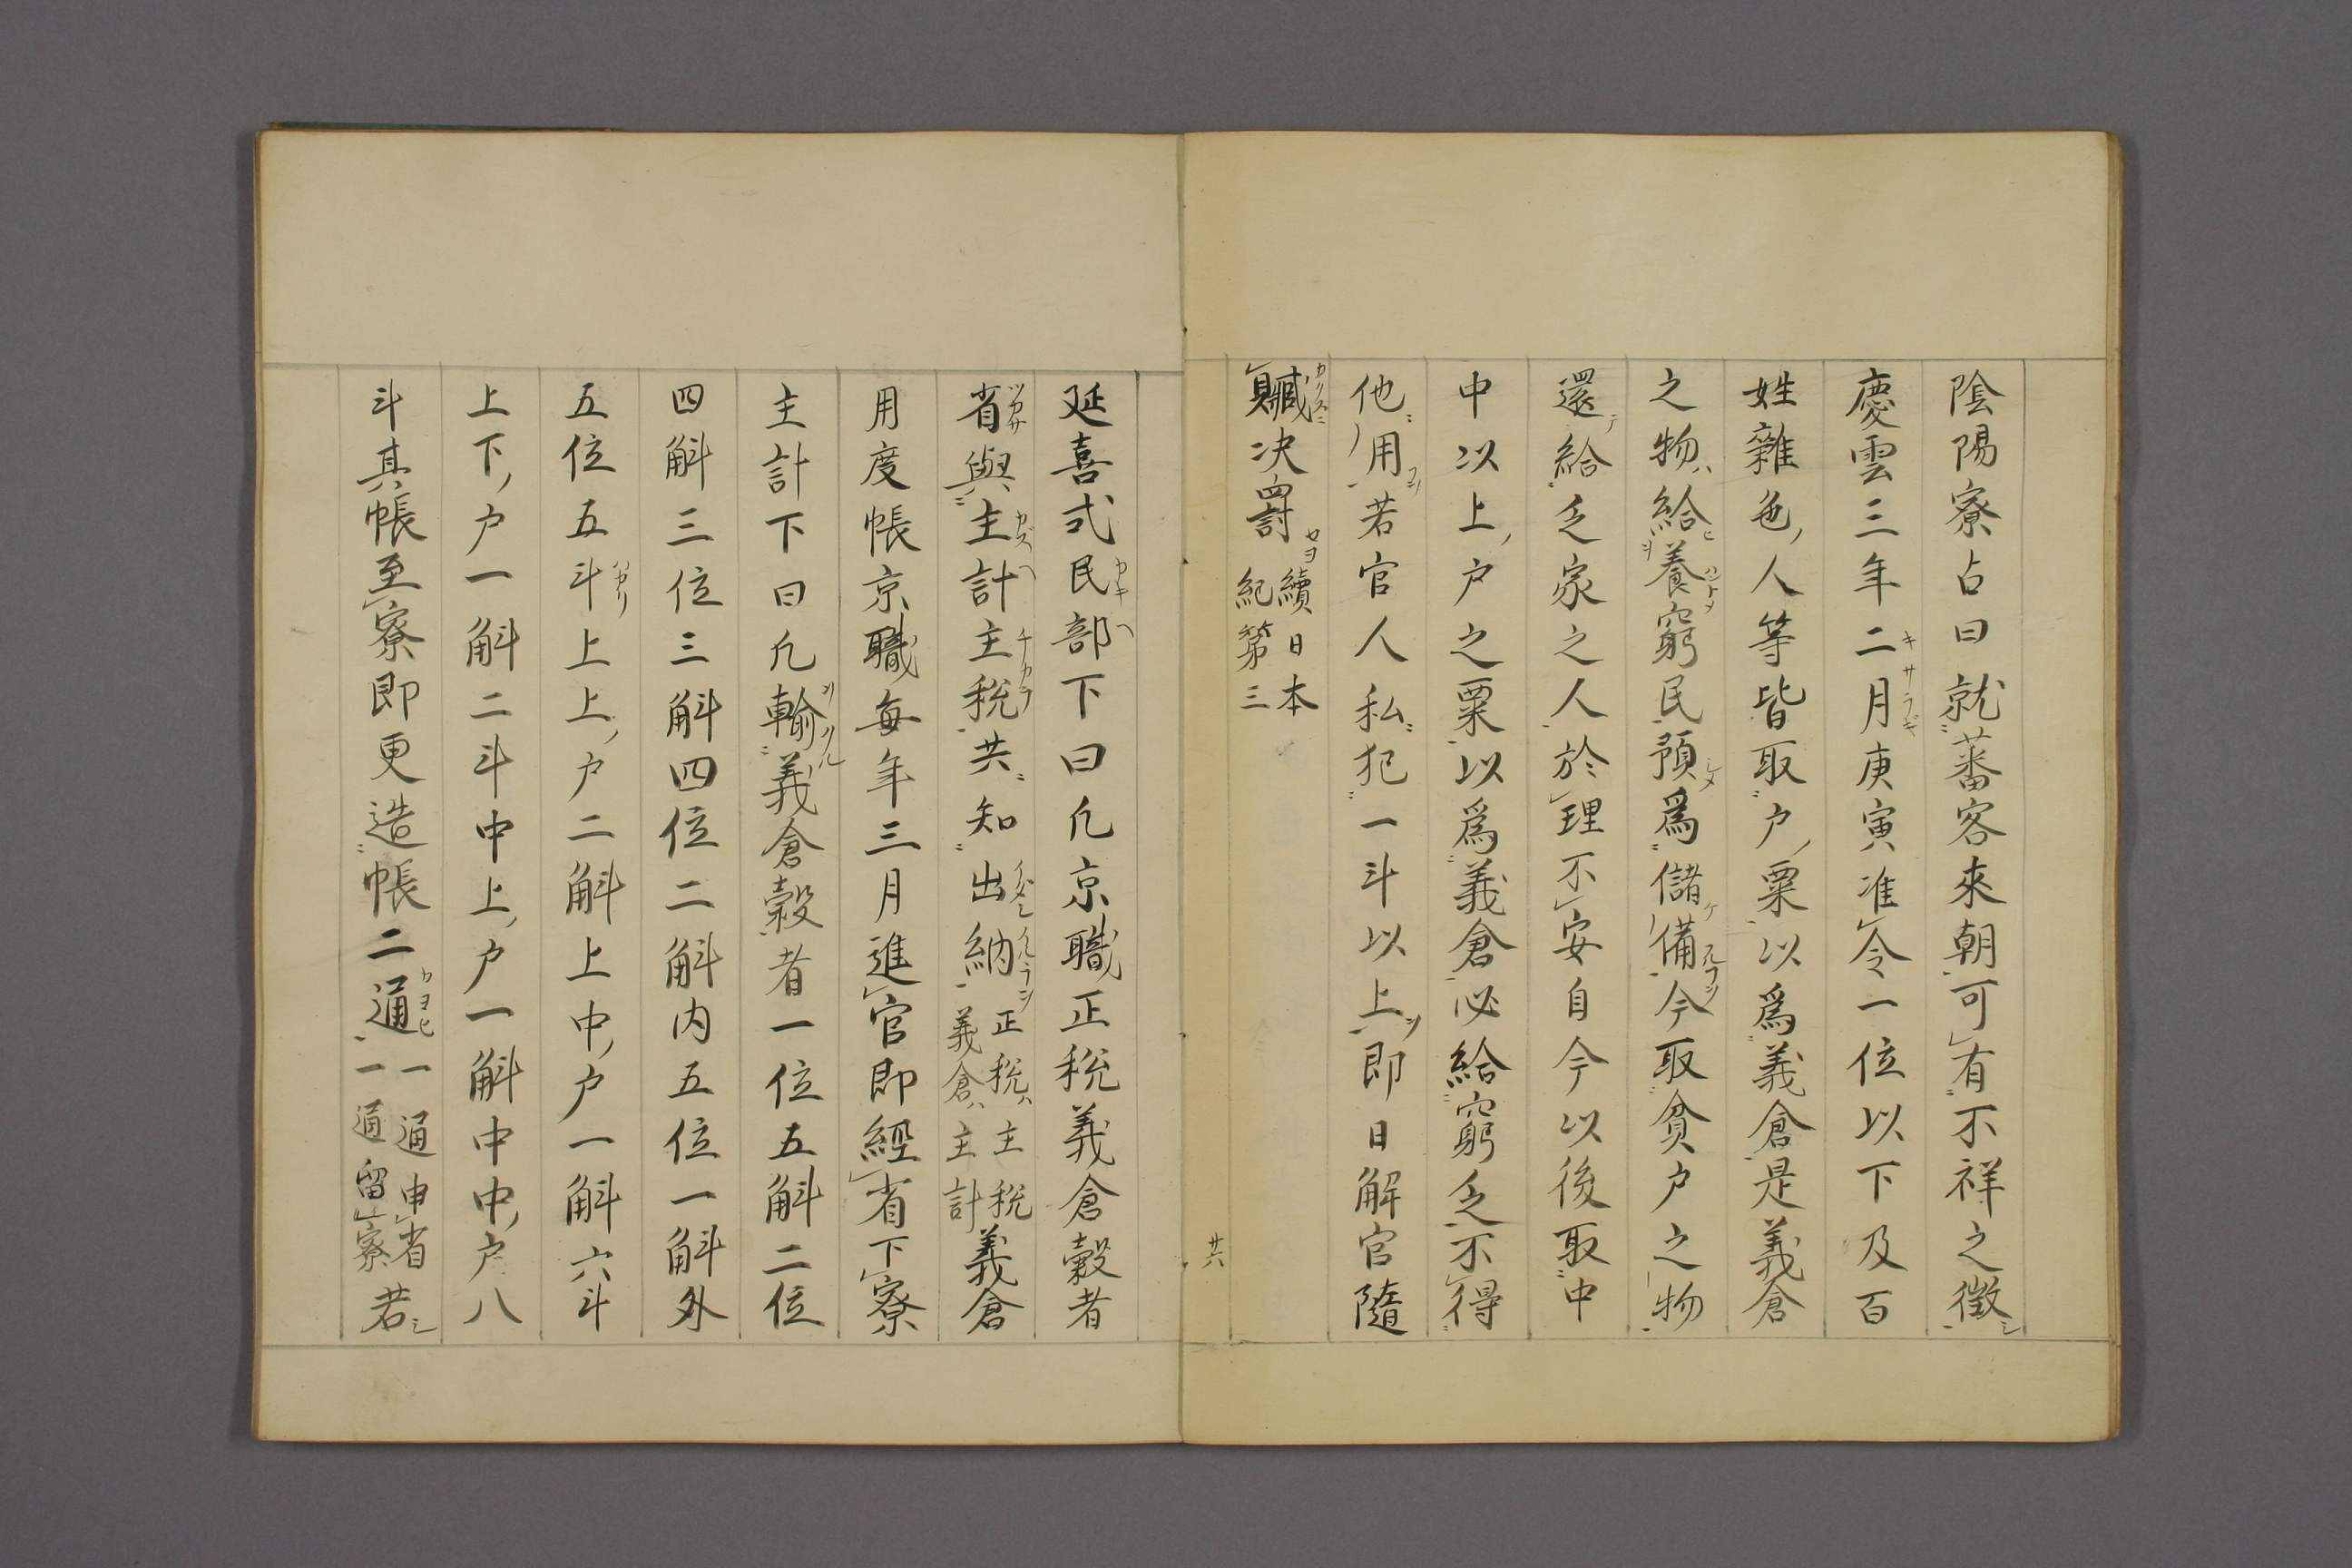 陰陽寮占曰就蕃客來朝可有不祥之徴
慶雲三年二月庚寅准令一位以下及百
姓雜色人等皆取戸粟以爲義倉是義倉
之物給養窮民預爲儲備今取貧戸之物
還給乏家之人於理不安自今以後取中
中以上戸之粟以爲義倉必給窮乏不得
他用若官人私犯一斗以上即日解官隨
贓决罰續日本
紀第三
廿六
延喜式民部下曰凡京職正税義倉穀者
省與主計主税共知出納正税ハ主税
義倉ハ主計義倉
用度帳京職毎年三月進官即經省下寮
主計下曰凡輸義倉穀者一位五斛二位
四斛三位三斛四位二斛内五位一斛外
五位五斗上上戸二斛上中戸一斛六斗
上下戸一斛二斗中上戸一斛中中戸八
斗其帳至寮即更造帳二通一通申省
一通留寮若